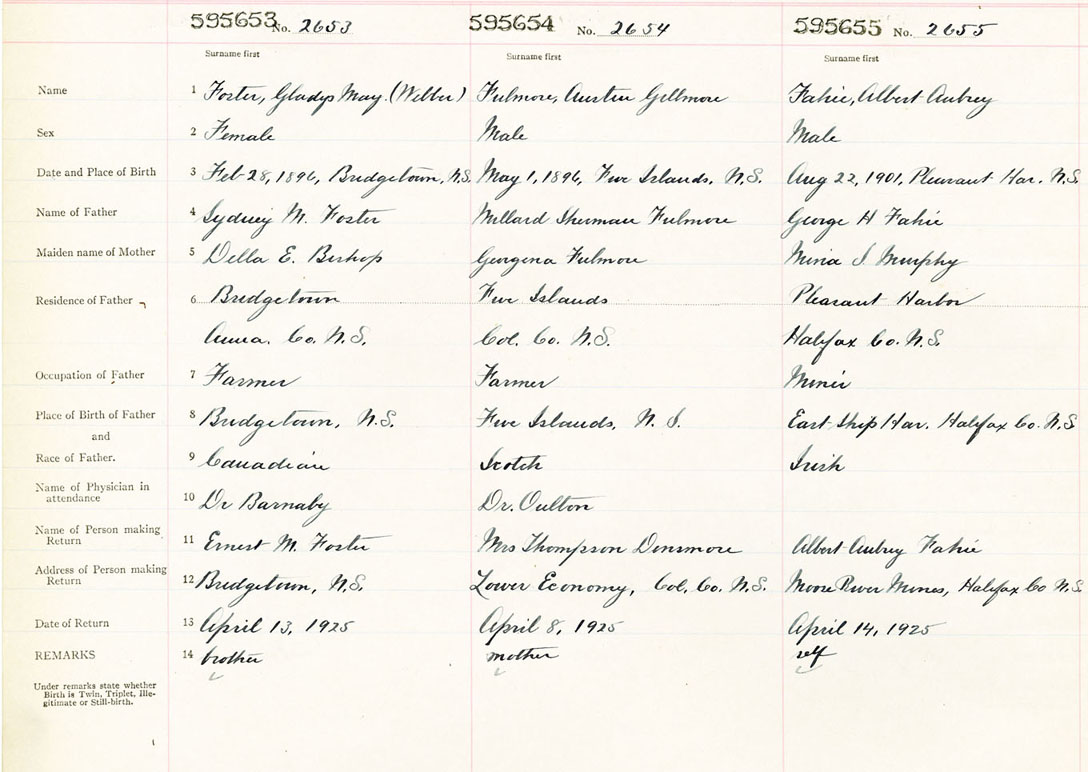 595653 No. 2653 595654 No. 2654 595655 No. 2655
Surname first Surname first Surname first
Name 1 Foster, Gladys May (Wilber) Fulmore, Austin Gillmore Fahie, Albert Aubrey
Sex 2 Female Male Male
Date and Place of Birth 3 Feb 28, 1896, Bridgetown, N.S. May 1, 1896, Five Islands, N.S. Aug 22, 1901, Pleasant Har. N.S.
Name of Father 4 Sydney M. Foster Willard Sherman Fulmore George H Fahie
Maiden name of Mother 5 Della E. Bishop Georgena Fulmore Mina J. Murphy
Residence of Father 6 Bridgetown Five Islands Pleasant Harbor
Anna. Co. N.S. Col. Co. N.S. Halifax Co. N.S.
Occupation of Father 7 Farmer Farmer Miner
Place of Birth of Father 8 Bridgetown, N.S. Five Islands, N.S. East Ship Har. Halifax Co. N.S
and
Race of Father. 9 Canadian Scotch Irish
Name of Physician in
attendance 10 Dr Barnaby Dr. Oulton
Name of Person making
Return 11 Ernest M. Foster Mrs Thompson Densmore Albert Aubrey Fahie
Address of Person making
Return 12 Bridgetown, N.S. Lower Economy, Col. Co. N.S. Moose River Mines, Halifax Co N.S.
Date of Return 13 April 13, 1925 April 8, 1925 April 14, 1925
REMARKS 14 brother mother self
Under remarks state whether
Birth is Twin, Triplet, Ille-
gitimate or Still-birth.